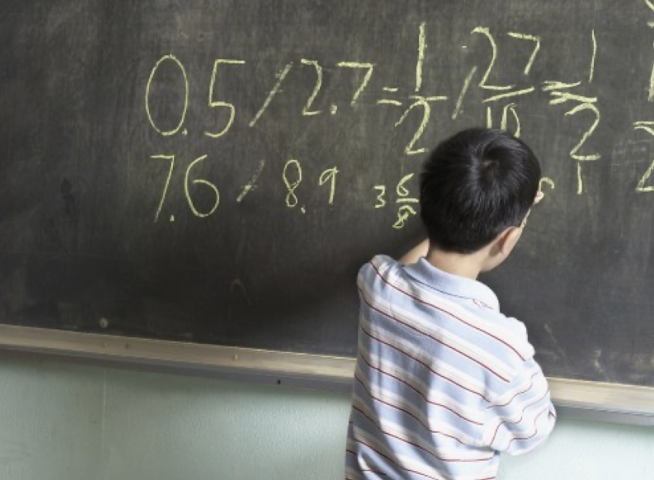 0.5 / 2.7 = 1/2 / 27/10 = 1/2
7.6 / 8.9 3 6/8